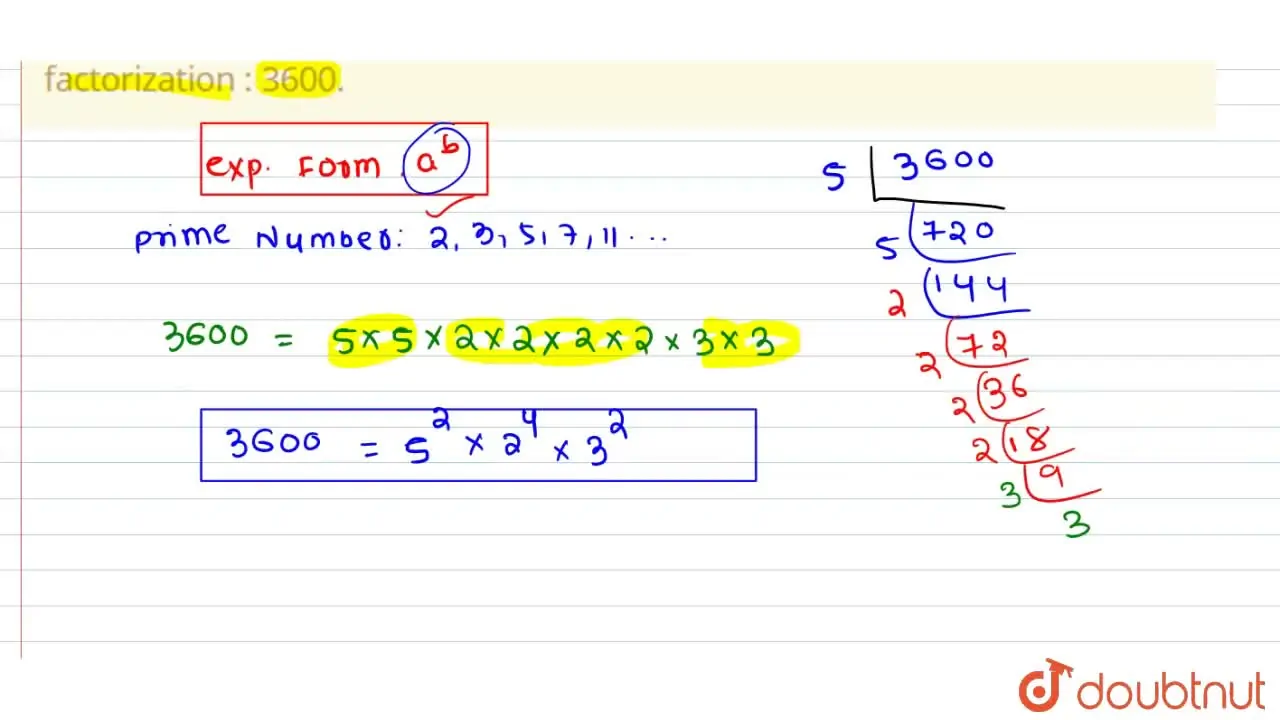 factorization : 3600.
exp. Form a^b
Prime Number: 2, 3, 5, 7, 11 ...
3600 = 5 × 5 × 2 × 2 × 2 × 2 × 3 × 3
3600 = 5² × 2⁴ × 3²
5 | 3600
5 | 720
2 | 144
2 | 72
2 | 36
2 | 18
3 | 9
3
doubtnut